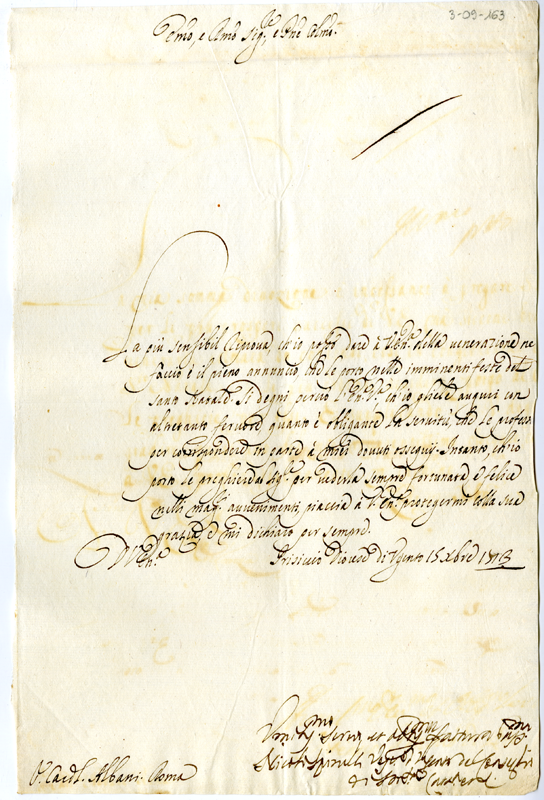 3-09-163
Em̃o, e Rm̃o Sig.re, e Pr̃ne Colm̃o
La più sensibil riprova, ch'io posso dare à V. Em.a della venerazione
faccio è il pieno annuncio, che le porto nelle imminenti feste del
Santo Natale. Si degni perciò V. Em.a ch'io gliele auguri con
altretanto fervore quanto è obligante la servitù, che le professo
per corrispondere in parte à miei dovuti ossequij. Intanto, ch'io
porto le preghiere al Sig.re per vederla sempre fortunata, e felice
nelli avvenimenti, piacerà à V. Em.a proteggermi colla sua
grazia, e mi dichiaro per sempre.
D V. Em.a
Diocese di Ugento 15 Xbre
Um.mo Servo et
Nicolò Spinelli
di
S.r Card.l Albani. Roma